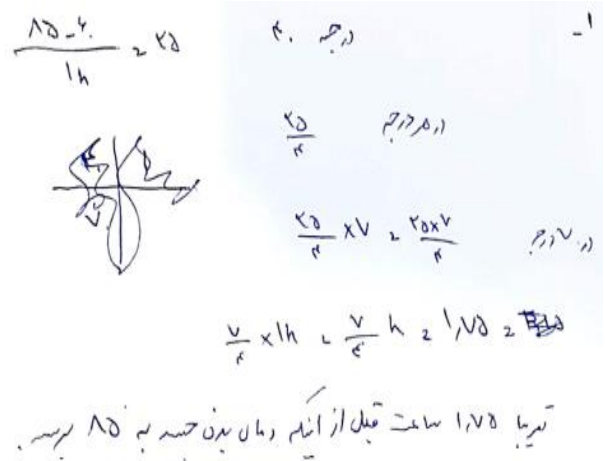 ۱-
۴۰ درجه
(۸۵-۶۰)/۱h = ۲۵
در هر درجه ۲۵/۴
در ۷ درجه ۲۵/۴ × ۷ = ۲۵×۷/۴
۷/۴ × ۱h = ۷/۴ h = ۱,۷۵ =
تقریبا ۱,۷۵ ساعت قبل از اینکه دمای بدن جسد به ۸۵ برسد.